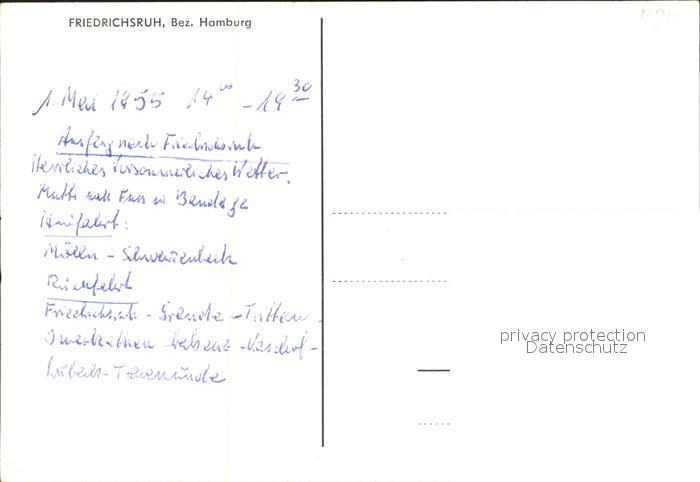 FRIEDRICHSRUH, Bez. Hamburg
1. Mai 1955 14 00 - 19 30
Ausflug nach Friedrichsruh
Herrliches vorsommerliches Wetter.
Mutti Fuss in Bandage
Hinfahrt:
Mölln - Schwarzenbek
Rückfahrt
Friedrichsruh - Grande - Trittau -
Lübeck - Travemünde
privacy protection
Datenschutz